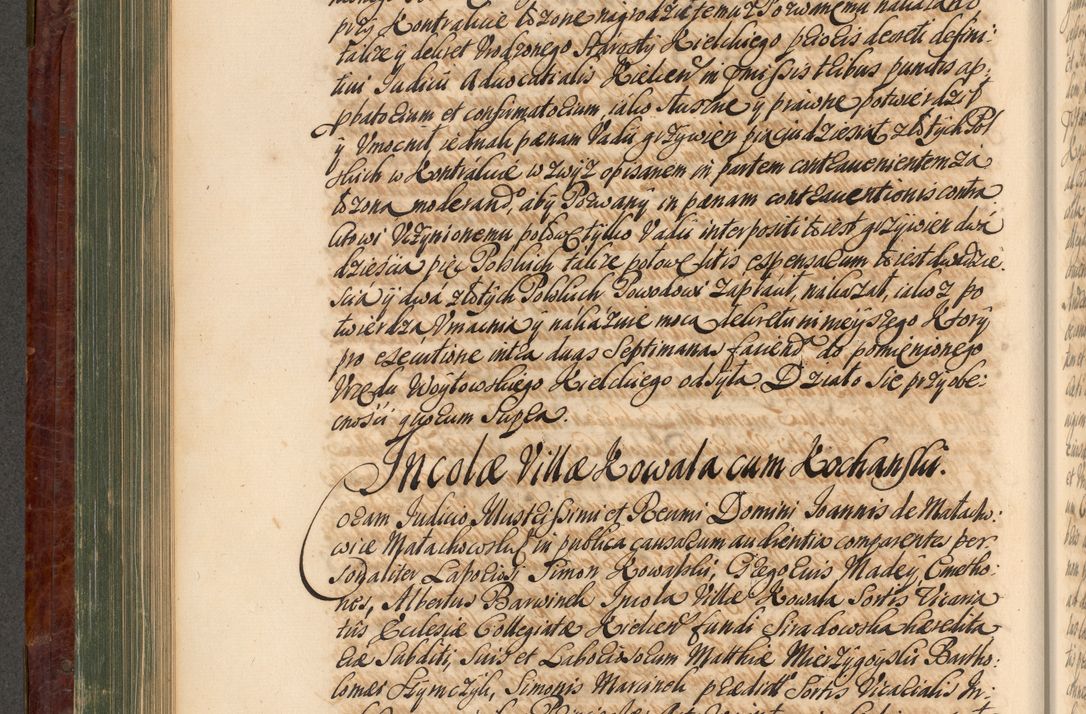 przy Kontrakcie łożone nagrodzi a temuż Pozwanemu nakazano
także y dekret Urodzonego Starosty Kieleckiego prioris decreti defini-
tivi Judicii Advocatialis Kielcen in præmissis tribus punctis ap-
probatorium et confirmatorium, iako słuszne y prawne potwierdził
y Umocnił, iednak pænam Vadii grzywien pięciudziesiąt złotych Pol
skich w Kontrakcie w zwyż opisanem in partem contravenientem za
łożona moderand, aby Pozwany in pænam contraventionis contra
ktowi Uczynionemu połowę tylko Vadii interpositi to iest grzywien dwa
dzieścia pięć Polskich także połowę litis expensarum to iest dwadzie-
ścia y dwa złotych Polskich Powodowi zapłacił, nakazał, iakoż po
twierdza, Umacnia y nakazuie mocą dekretu ninieyszego Ktory
pro executione intra duas Septimanas faciend do pomienionego
Urzędu Woytowskiego Kieleckiego odsyła Działo się przy obe-
cności quorum Supra.
Incolæ Villæ Kowala cum Kochanski.
Coram Judicio Illustrissimi et Reverendissimi Domini Joannis de Małacho-
wice Małachowski in publica causarum audientia comparentes per
sonaliter Laboriosi Simon Kowalski, Gregorius Madey, Cmetho-
nes, Albertus Barwinek Incola Villæ Kowala Sortis Vicaria
tus Ecclesiæ Collegiatæ Kielcen fundi Siradowska hæredita
riæ Subditi, Suis et Laboriosorum Matthiæ Mierzygoyski Bartho-
lomæi Szymczyk, Simonis Marcinek prædict Sortis Vicarialis In-